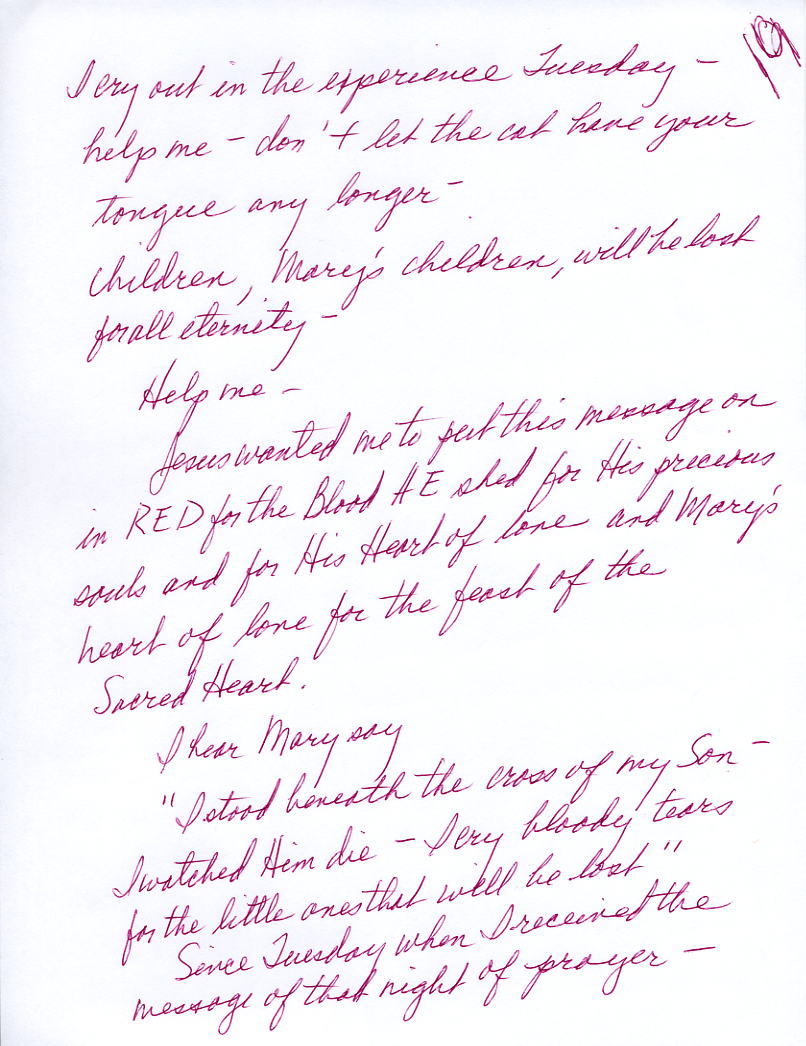 19
I cry out in the experience Tuesday -
help me - don't let the cat have your
tongue any longer -
children, Mary's children, will be lost
for all eternity -
Help me -
Jesus wanted me to put this message on
in RED for the Blood HE shed for His precious
souls and for His Heart of love and Mary's
heart of love for the feast of the
Sacred Heart.
I hear Mary say
"I stood beneath the cross of my Son -
I watched Him die - I cry bloody tears
for the little ones that will be lost"
Since Tuesday when I received the
message of that night of prayer -